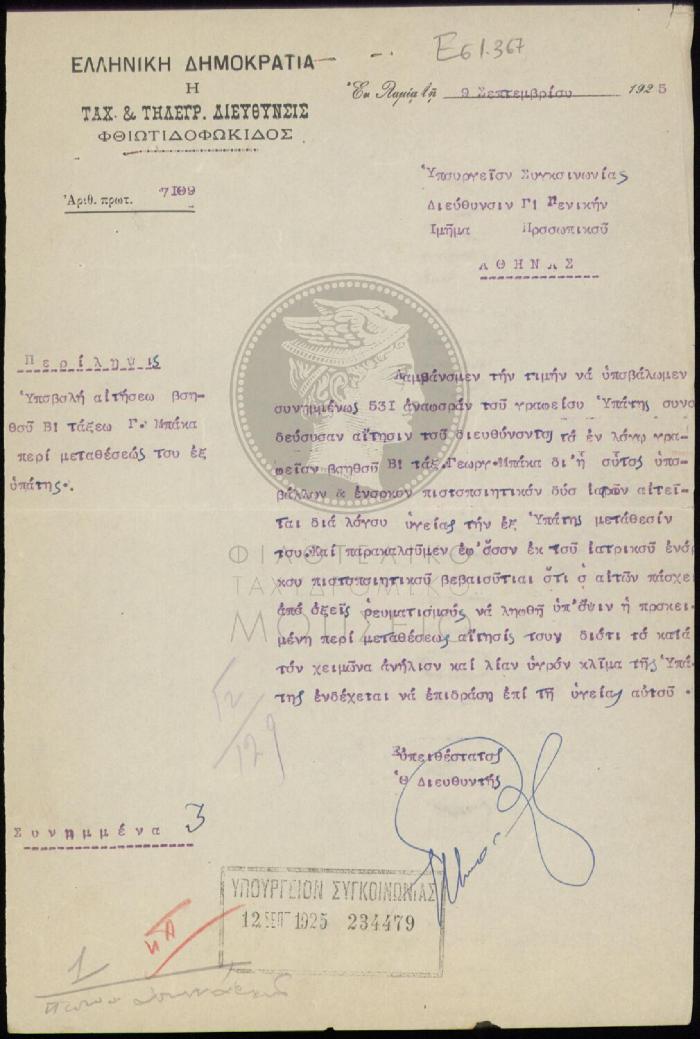 Ε61.367
ΕΛΛΗΝΙΚΗ ΔΗΜΟΚΡΑΤΙΑ
Η
ΤΑΧ. & ΤΗΛΕΓΡ. ΔΙΕΥΘΥΝΣΙΣ
ΦΘΙΩΤΙΔΟΦΩΚΙΔΟΣ
Ἐν Λαμίᾳ τῇ 9 Σεπτεμβρίου 1925
Ἀριθ. πρωτ. 7109
Ὑπουργεῖον Συγκοινωνίας
Διεύθυνσιν Γ! Γενικήν
Τμῆμα Προσωπικοῦ
ΑΘΗΝΑΣ
Περίληψις
Ὑποβολή αἰτήσεω βοη-
θοῦ Β! τάξεω Γ. Μπάκα
περί μεταθέσεώς του ἐξ
ὑπάτης.
Λαμβάνομεν τήν τιμήν νά ὑποβάλωμεν
συνημμένως 531 ἀναφοράν τοῦ γραφείου Ὑπάτης συνο
δεύουσαν αἴτησιν τοῦ διευθύνοντος τό ἐν λόγῳ γρα-
φεῖον βοηθοῦ Β! τάξ. Γεωργ. Μπάκα δι'ἧ οὗτος ὑπο-
βάλλον & ἔνορκον πιστοποιητικόν δύο ἰατρῶν αἰτεῖ-
ται διά λόγου ὑγείας τήν ἐξ Ὑπάτης μετάθεσίν
του. Καί παρακαλοῦμεν ἐφ'ὅσον ἐκ τοῦ ἰατρικοῦ ἐνόρ
κου πιστοποιητικοῦ βεβαιοῦται ὅτι ὁ αἰτῶν πάσχει
ἀπό ὀξεῖς ῥευματισμούς νά ληφθῆ ὑπ'ὄψιν ἡ προκει-
μένη περί μεταθέσεως αἴτησίς του διότι τό κατά
τόν χειμῶνα ἀνήλιον καί λίαν ὑγρόν κλῖμα τῆς Ὑπά-
της ἐνδέχεται νά ἐπιδράση ἐπί τῆ ὑγείας αὐτοῦ.
ΦΙΛΟΤΕΛΙΚΟ
ΤΑΧΥΔΡΟΜΙΚΟ
ΜΟΥΣΕΙΟ
12/129
Εὐπειθέστατος
Ὁ Διευθυντής
Συνημμένα 3
ΥΠΟΥΡΓΕΙΟΝ ΣΥΓΚΟΙΝΩΝΙΑΣ
12 ΣΕΠΤ 1925 234479
1